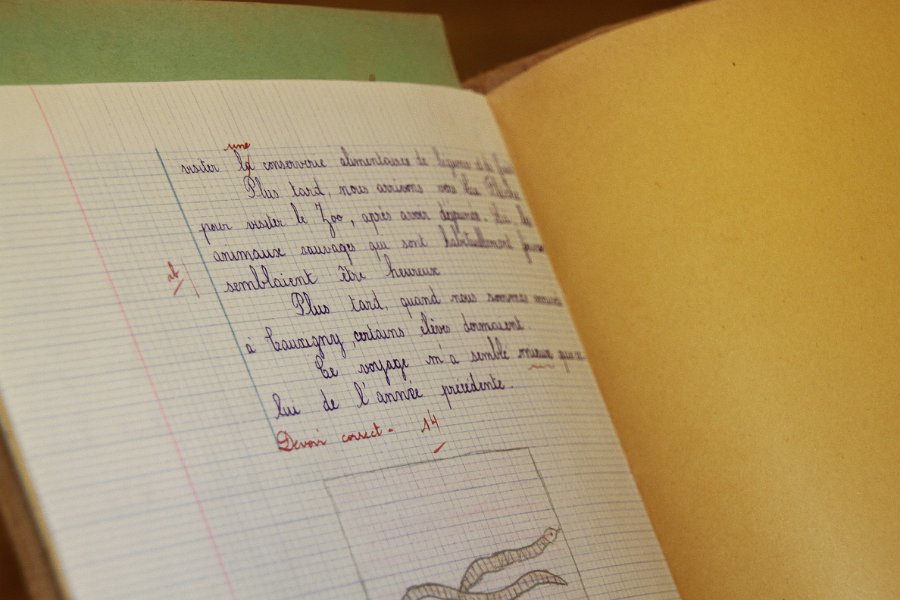 une
visiter la conserverie alimentaires de légumes et de
Plus tard, nous arrivons
pour visiter le Zoo, après avoir déjeuné. les
animaux sauvages qui sont habituellement
semblaient être heureux
Plus tard, quand nous sommes
à Chauvigny, certains élèves dormaient.
Ce voyage m'a semblé mieux
lui de l'année précédente.
Devoir correct. 14